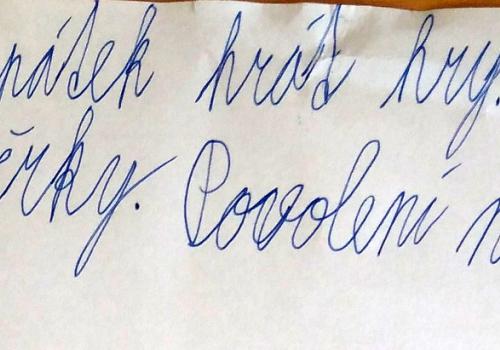 pátek hrát hry.
ěrky. Povolení n